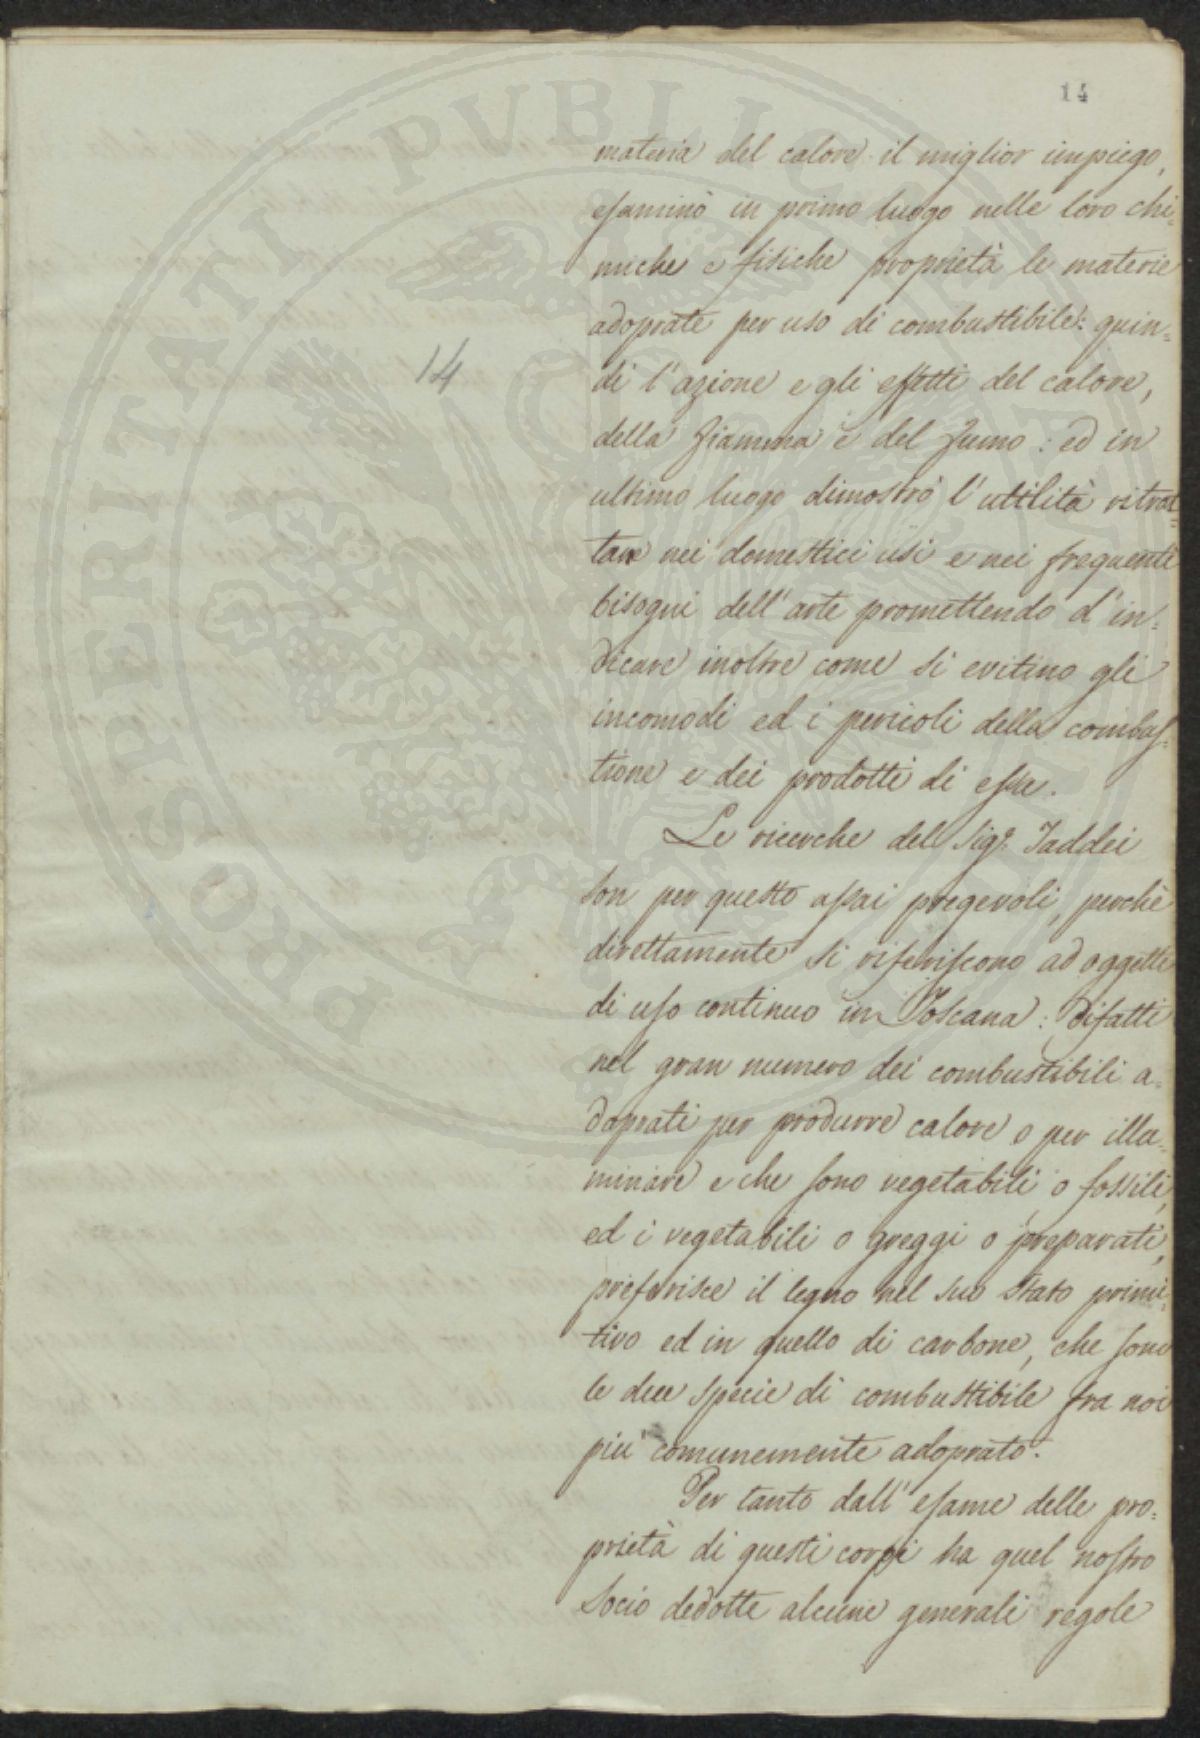 14
materia del calore il miglior impiego,
esaminò in primo luogo nelle loro chi=
miche e fisiche proprietà le materie
adoprate per uso di combustibile: quin=
di l'azione e gli effetti del calore,
della fiamma e del fumo: ed in
ultimo luogo dimostrò l'utilità ritrat=
tane nei domestici usi e nei frequenti
bisogni dell'arte promettendo d'in=
dicare inoltre come si evitino gli
incomodi ed i pericoli della combus=
tione e dei prodotti di essa.
Le ricerche del Sig.r Taddei
son per questo assai pregevoli, perchè
direttamente si riferiscono ad oggetti
di uso continuo in Toscana: difatti
nel gran numero dei combustibili a=
doprati per produrre calore o per illu=
minare e che sono vegetabili o fossili,
ed i vegetabili o greggi o preparati,
preferisce il legno nel suo stato primi=
tivo ed in quello di carbone, che sono
le due specie di combustibile fra noi
più comunemente adoprato.
Per tanto dall'esame delle pro=
prietà di questi corpi ha quel nostro
Socio dedotte alcune generali regole
14
PROSPERITATI PVBLICAE AVGENDAE